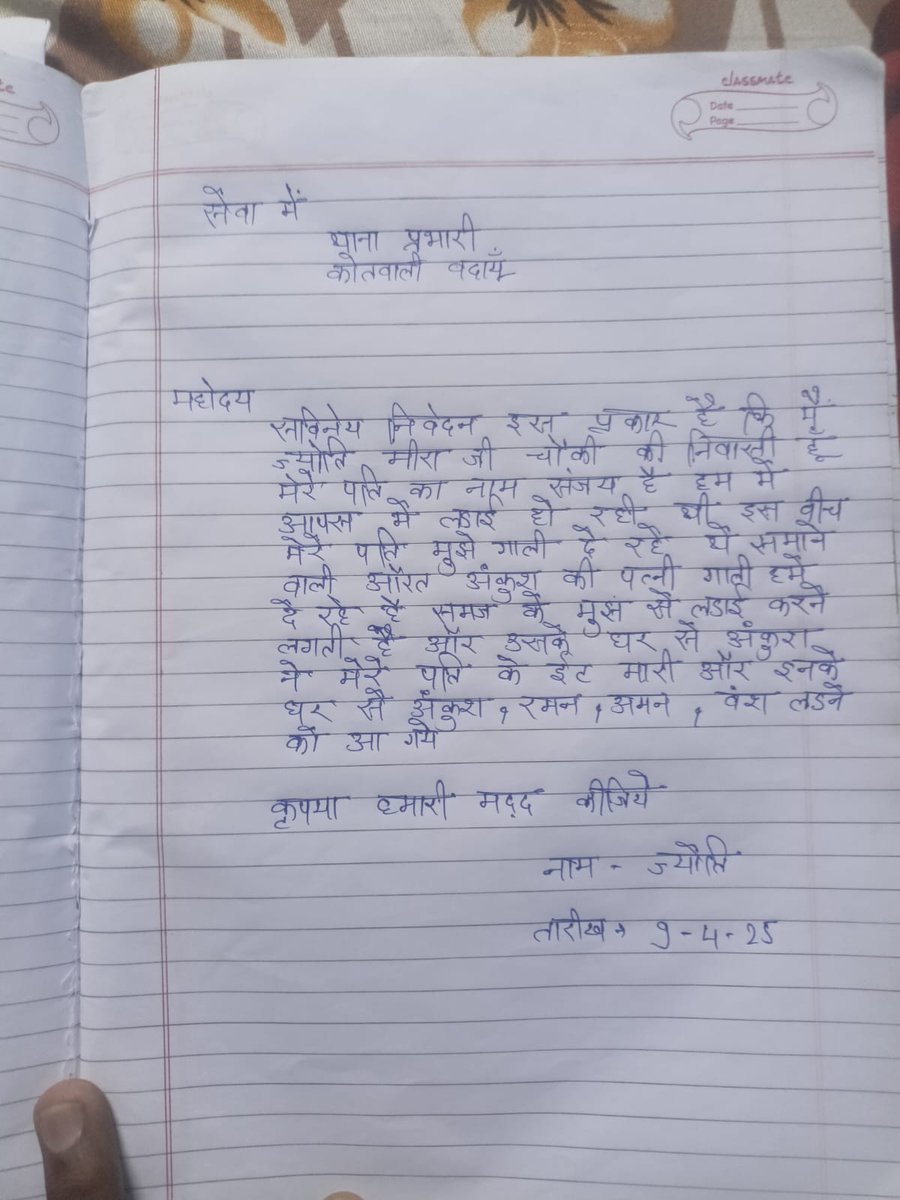 classmate
Date
Page
सेवा में
थाना प्रभारी
कोतवाली वदायूँ
महोदय
सविनय निवेदन इस प्रकार है कि मैं
ज्योति मीरा जी चौकी की निवासी हूँ
मेरे पति का नाम संजय है हम में
आपस में लडाई हो रही थी इस वीच
मेरे पति मुझे गाली दे रहे थे समाने
वाली औरत अंकुश की पत्नी गाली हमें
दे रहे है समज के मुझ से लडाई करने
लगती है और उसके घर से अंकुश
ने मेरे पति के ईट मारी और इनके
घर से अंकुश, रमन, अमन, वंश लडने
को आ गये
कृपया हमारी मद्द कीजिये
नाम - ज्योति
तारीख → 9-4-25